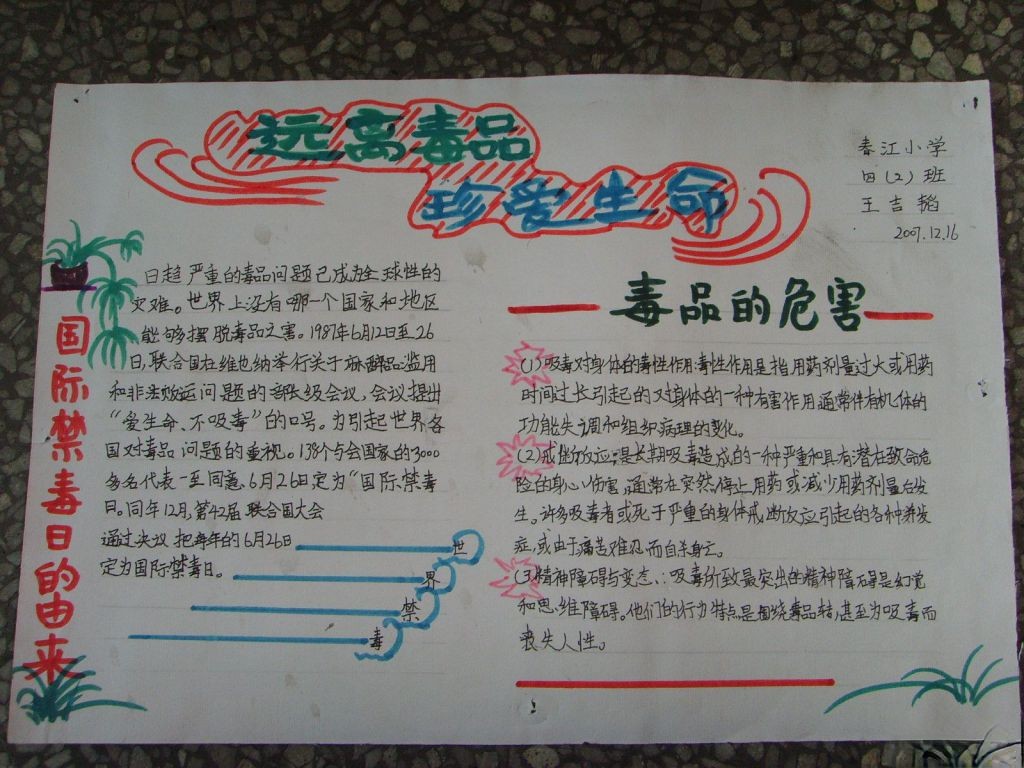 远离毒品
珍爱生命
春江小学
四(2)班
王吉韬
2007.12.16
国际禁毒日的由来
日趋严重的毒品问题已成为全球性的
灾难。世界上没有哪一个国家和地区
能够摆脱毒品之害。1987年6月12日至26
日,联合国在维也纳举行关于麻醉品滥用
和非法贩运问题的部长级会议,会议提出
“爱生命、不吸毒”的口号。为引起世界各
国对毒品问题的重视。138个与会国家的3000
多名代表一至同意,6月26日定为“国际禁毒
日。同年12月,第42届联合国大会
通过决议把每年的6月26日
定为国际禁毒日。
世
界
禁
毒
毒品的危害
(1)吸毒对身体的毒性作用:毒性作用是指用药剂量过大或用药
时间过长引起的对身体的一种有害作用通常伴有机体的
功能失调和组织病理的变化。
(2)戒断放应:是长期吸毒造成的一种严重和具有潜在致命危
险的身心伤害,通常在突然停止用药或减少用药剂量后发
生。许多吸毒者或死于严重的身体戒断放应引起的各种并发
症,或由于痛苦难忍而自杀身亡。
(3)精神障碍与变态:吸毒所致最突出的精神障碍是幻觉
和思维障碍。他们的行为特点是围绕毒品转,甚至为吸毒而
丧失人性。